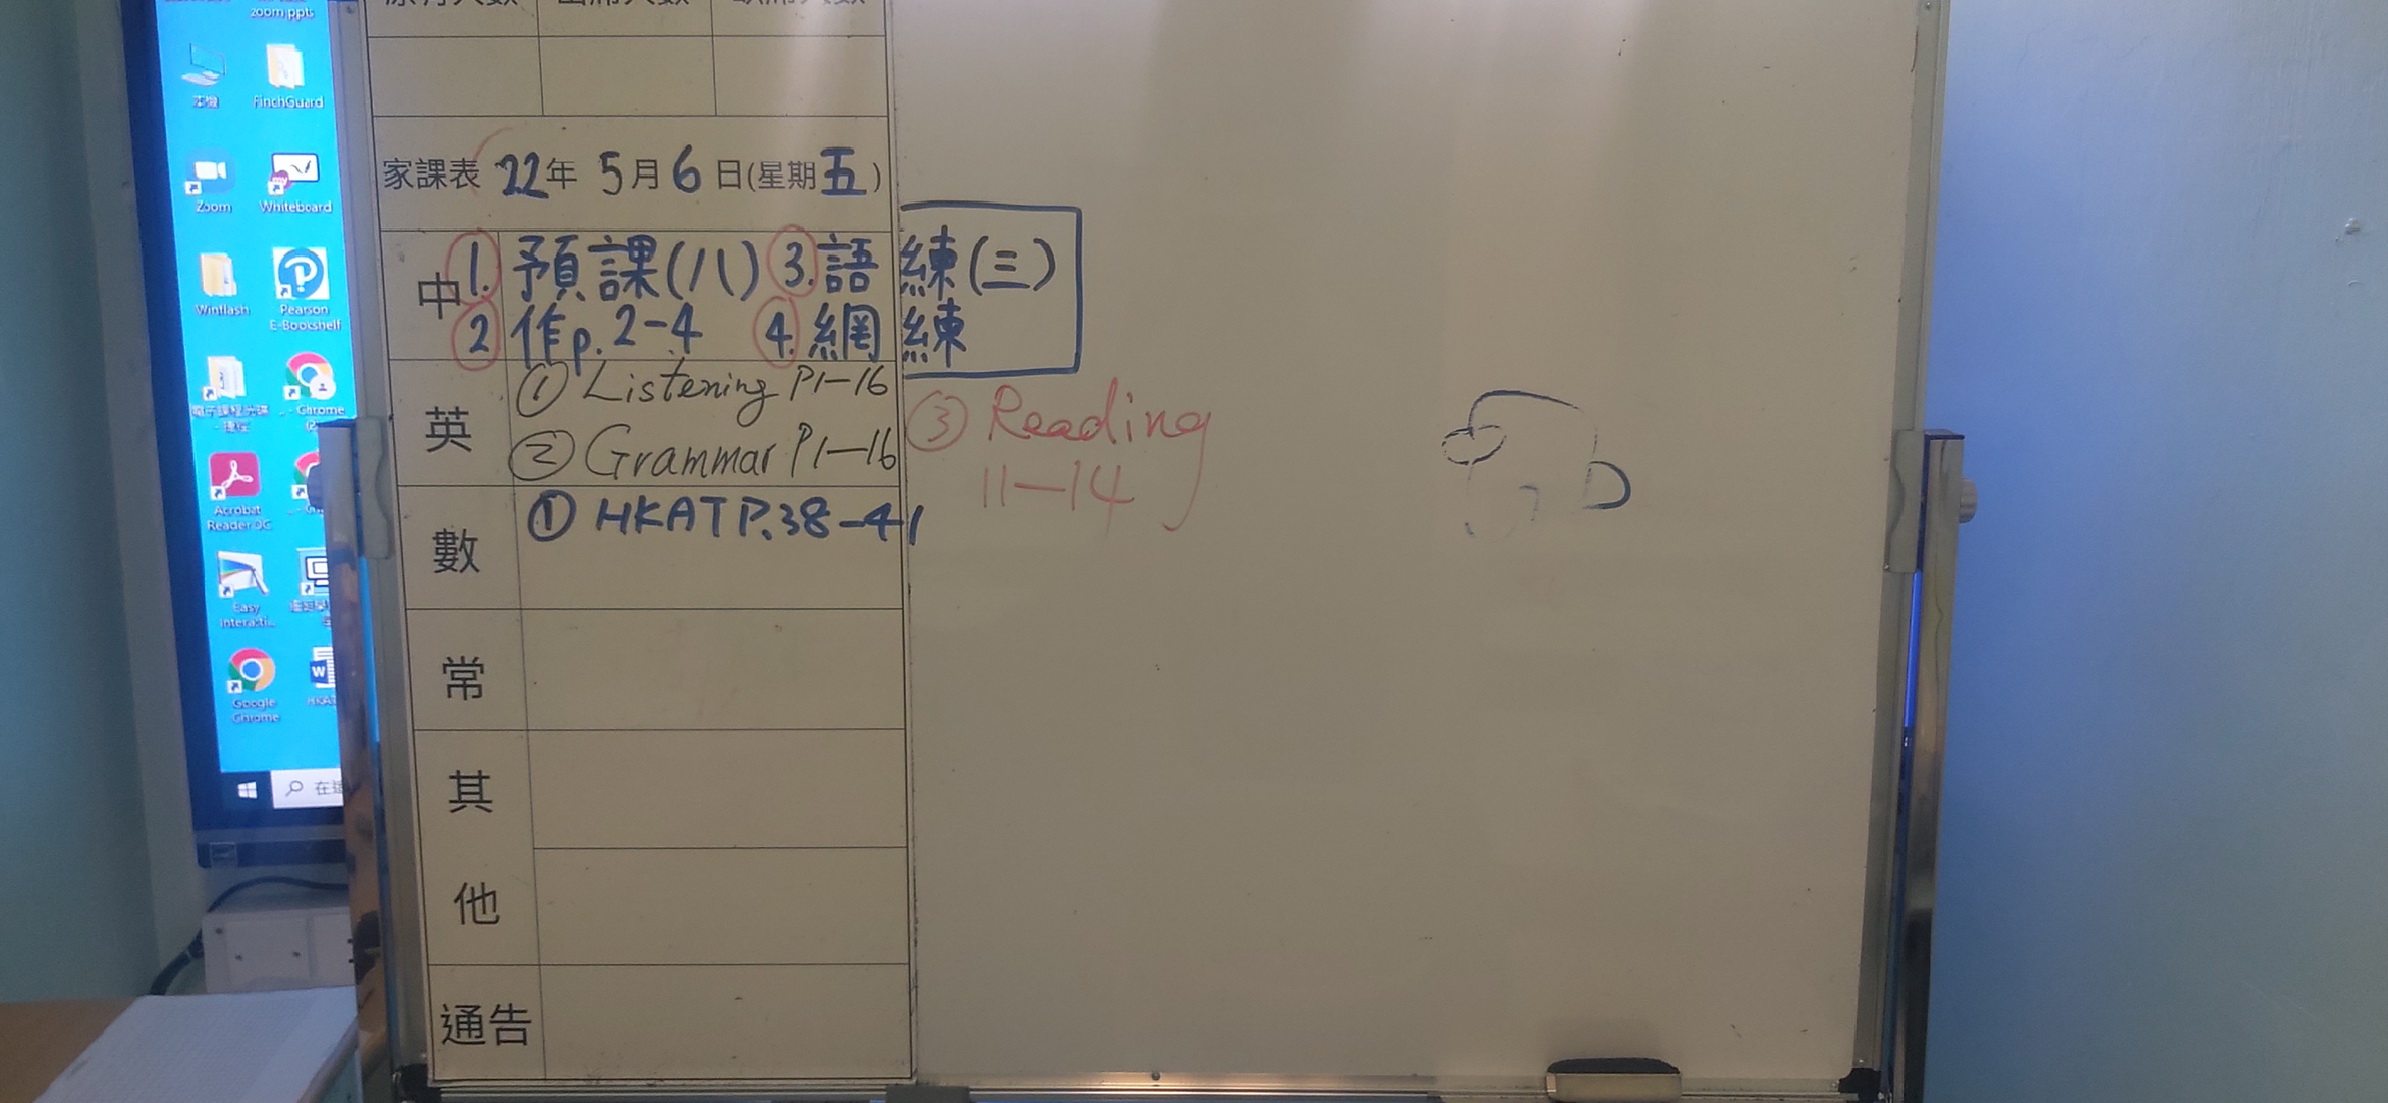 zoom.ppts
本機
FinchGuard
Zoom
Whiteboard
Winflash
Pearson
E-Bookshelf
Chrome
Acrobat
Reader DC
Easy
Interacti...
Google
Chrome
家課表 22年 5月6日(星期五)
中
1. 預課(八) 3. 語練(三)
2 作p.2-4 4. 網練
英
① Listening P1-16
② Grammar P1-16
③ Reading
11-14
數
① HKAT P.38-41
常
其
他
通告